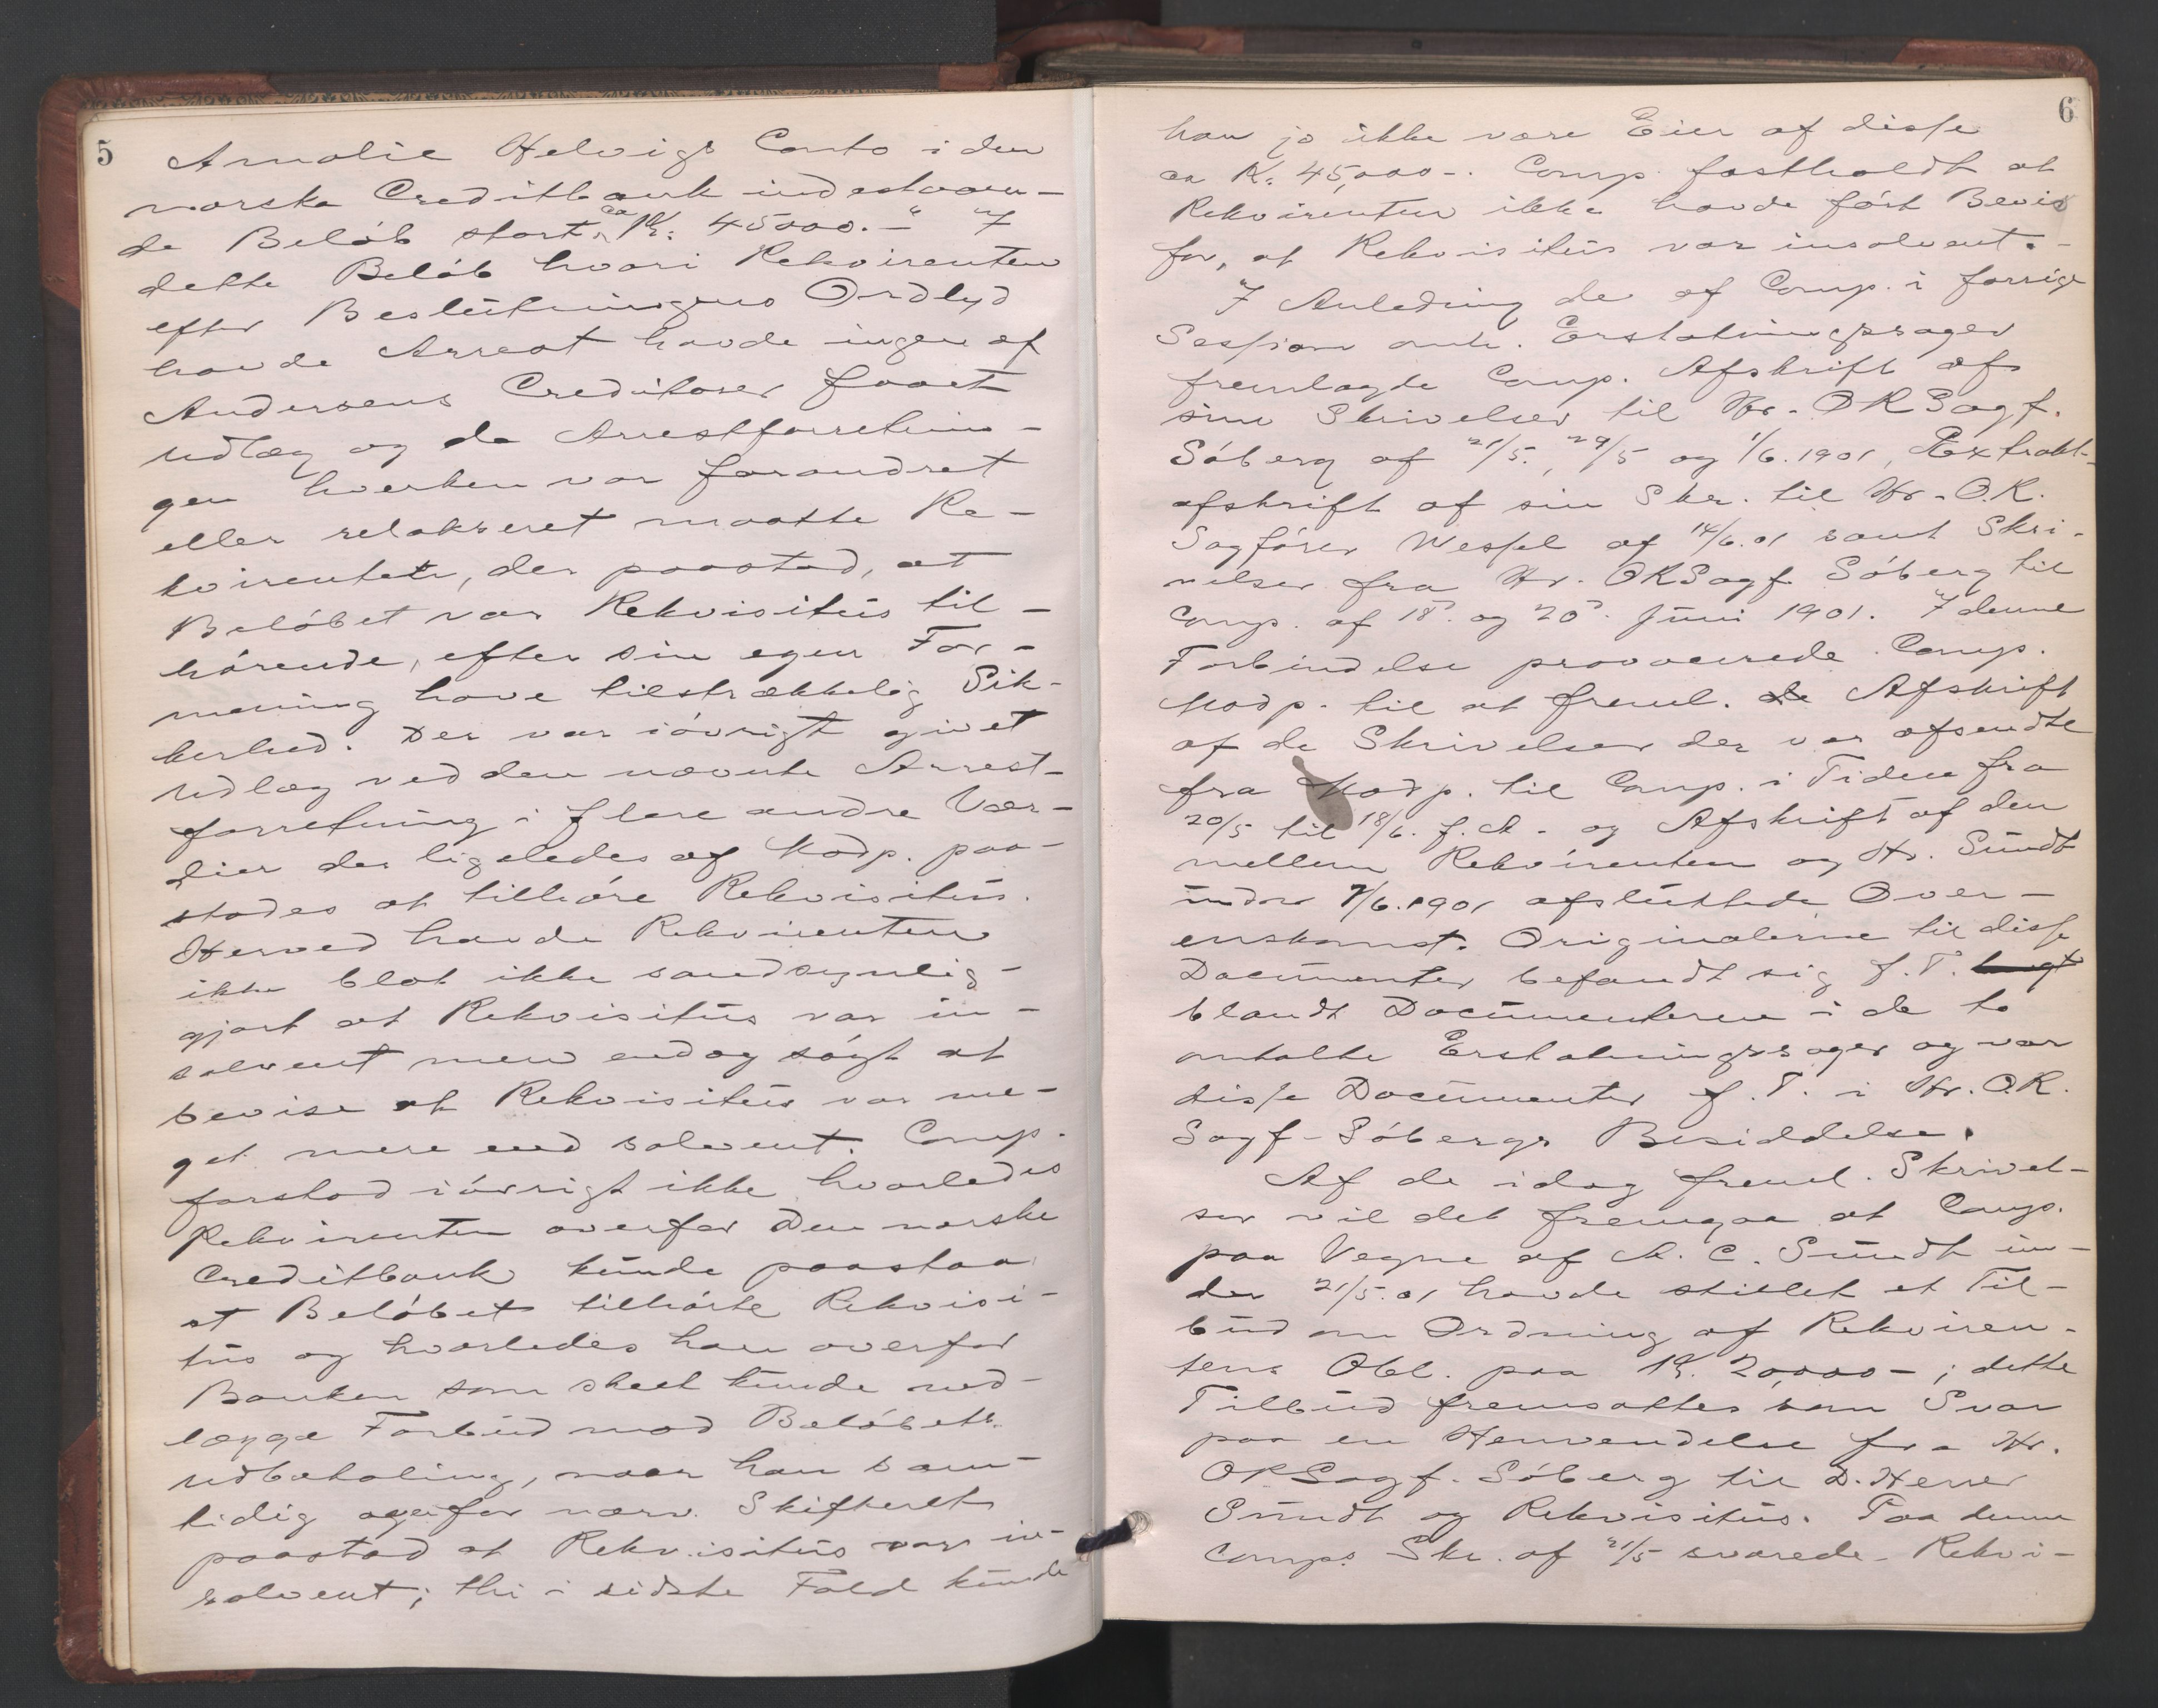 5
Amalie Helvigs Conto i den
norske Creditbank indestaaen-
de Beløb stort ca Kr: 45000.-" I
dette Beløb hvori Rekvirenten
efter Beslutningens Ordlyd
havde Arrest havde ingen af
Andersens Creditorer faaet
Udlæg og da Arrestforretnin-
gen hverken var forandret
eller relakseret maatte Re-
kvirenten, der paastod, at
Beløbet var Rekvisitus til-
hørende, efter sin egen For-
mening have tilstrækkelig Sik-
kerhed. Der var iøvrigt givet
Udlæg ved den nævnte Arrest-
forretning i flere andre Vær-
dier der ligeledes af Modp. paa-
stodes at tilhøre Rekvisitus.
Herved havde Rekvirenten
ikke blot ikke sandsynlig-
gjort at Rekvisitus var in-
solvent men endog søgt at
bevise at Rekvisitus var me-
get mere end solvent. Comp.
forstod iøvrigt ikke hvorledes
Rekvirenten overfor Den norske
Creditbank kunde paastaa
at Beløbet tilhørte Rekvisi-
tus og hvorledes han overfor
Banken som skeet kunde ned-
lægge Forbud mod Beløbets
Udbetaling, naar han sam-
tidig overfor nærv. Skifteret
paastod at Rekvisitus var in-
solvent; thi i sidste Fald kunde
6
han jo ikke være Eier af disse
ca K: 45,000-. Comp. fastholdt at
Rekvirenten ikke havde ført Bevis
for, at Rekvisitus var insolvent.-
I Anledning de af Comp. i forrige
Session omh. Erstatningssager
fremlagde Comp. Afskrift af
sine Skrivelser til Hr. ORSagf.
Søberg af 21/5., 29/5 og 1/6.1901, Extrakt-
afskrift af sin Skr. til Hr. O.R.
Sagfører Wessel af 14/6.01 samt Skri-
velser fra Hr. ORSagf. Søberg til
Comp. af 18. og 20. Juni 1901. I denne
Forbindelse provocerede Comp.
Modp. til at freml. de Afskrift
af de Skrivelser der var afsendte
fra Modp. til Comp. i Tiden fra
20/5 til 18/6. f.A. og Afskrift af den
mellem Rekvirenten og Hr. Sundt
under 7/6.1901 afsluttede Over-
enskomst. Originalerne til disse
Documenter befandt sig f.T.
blandt Documenterne i de to
omtalte Erstatningssager og var
disse Documenter f.T. i Hr. O.R.
Sagf. Søbergs Besiddelse.
Af de idag freml. Skrivel-
ser vil det fremgaa at Comp.
paa Vegne af A. C. Sundt un-
der 21/5.01 havde stillet et Til-
bud om Ordning af Rekviren-
tens Obl. paa K. 20,000-; dette
Tilbud fremsattes som Svar
paa en Henvendelse fra Hr.
ORSagf. Søberg til D. Herrer
Sundt og Rekvisitus. Paa denne
Comps Skr. af 21/5 svarede Rekvi-